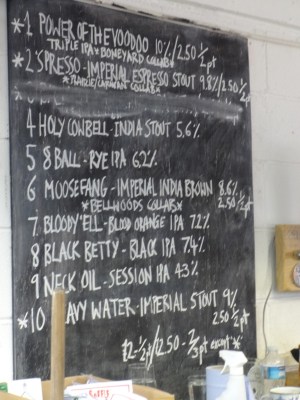 *1 POWER OF THE VOODOO 10%/2.50 ½pt
TRIPLE IPA * BONEYARD COLLAB *
*2 'SPRESSO - IMPERIAL ESPRESSO STOUT 9.8%/2.50 ½pt
COLLAB*
4 HOLY COWBELL - INDIA STOUT 5.6%
5 8 BALL - RYE IPA 6.2%
6 MOOSEFANG - IMPERIAL INDIA BROWN 8.6%
*BELLWOODS COLLAB* 2.50/½pt
7 BLOODY 'ELL - BLOOD ORANGE IPA 7.2%
8 BLACK BETTY - BLACK IPA 7.4%
9 NECK OIL - SESSION IPA 4.3%
*10 AVY WATER - IMPERIAL STOUT 9%
2.50 ½pt
£2 - ½pt/£2.50 - ⅔pt except *